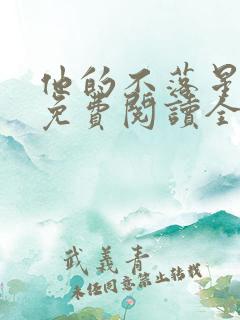 他的不落星
免費閱讀全
武義青
未經同意禁止转载